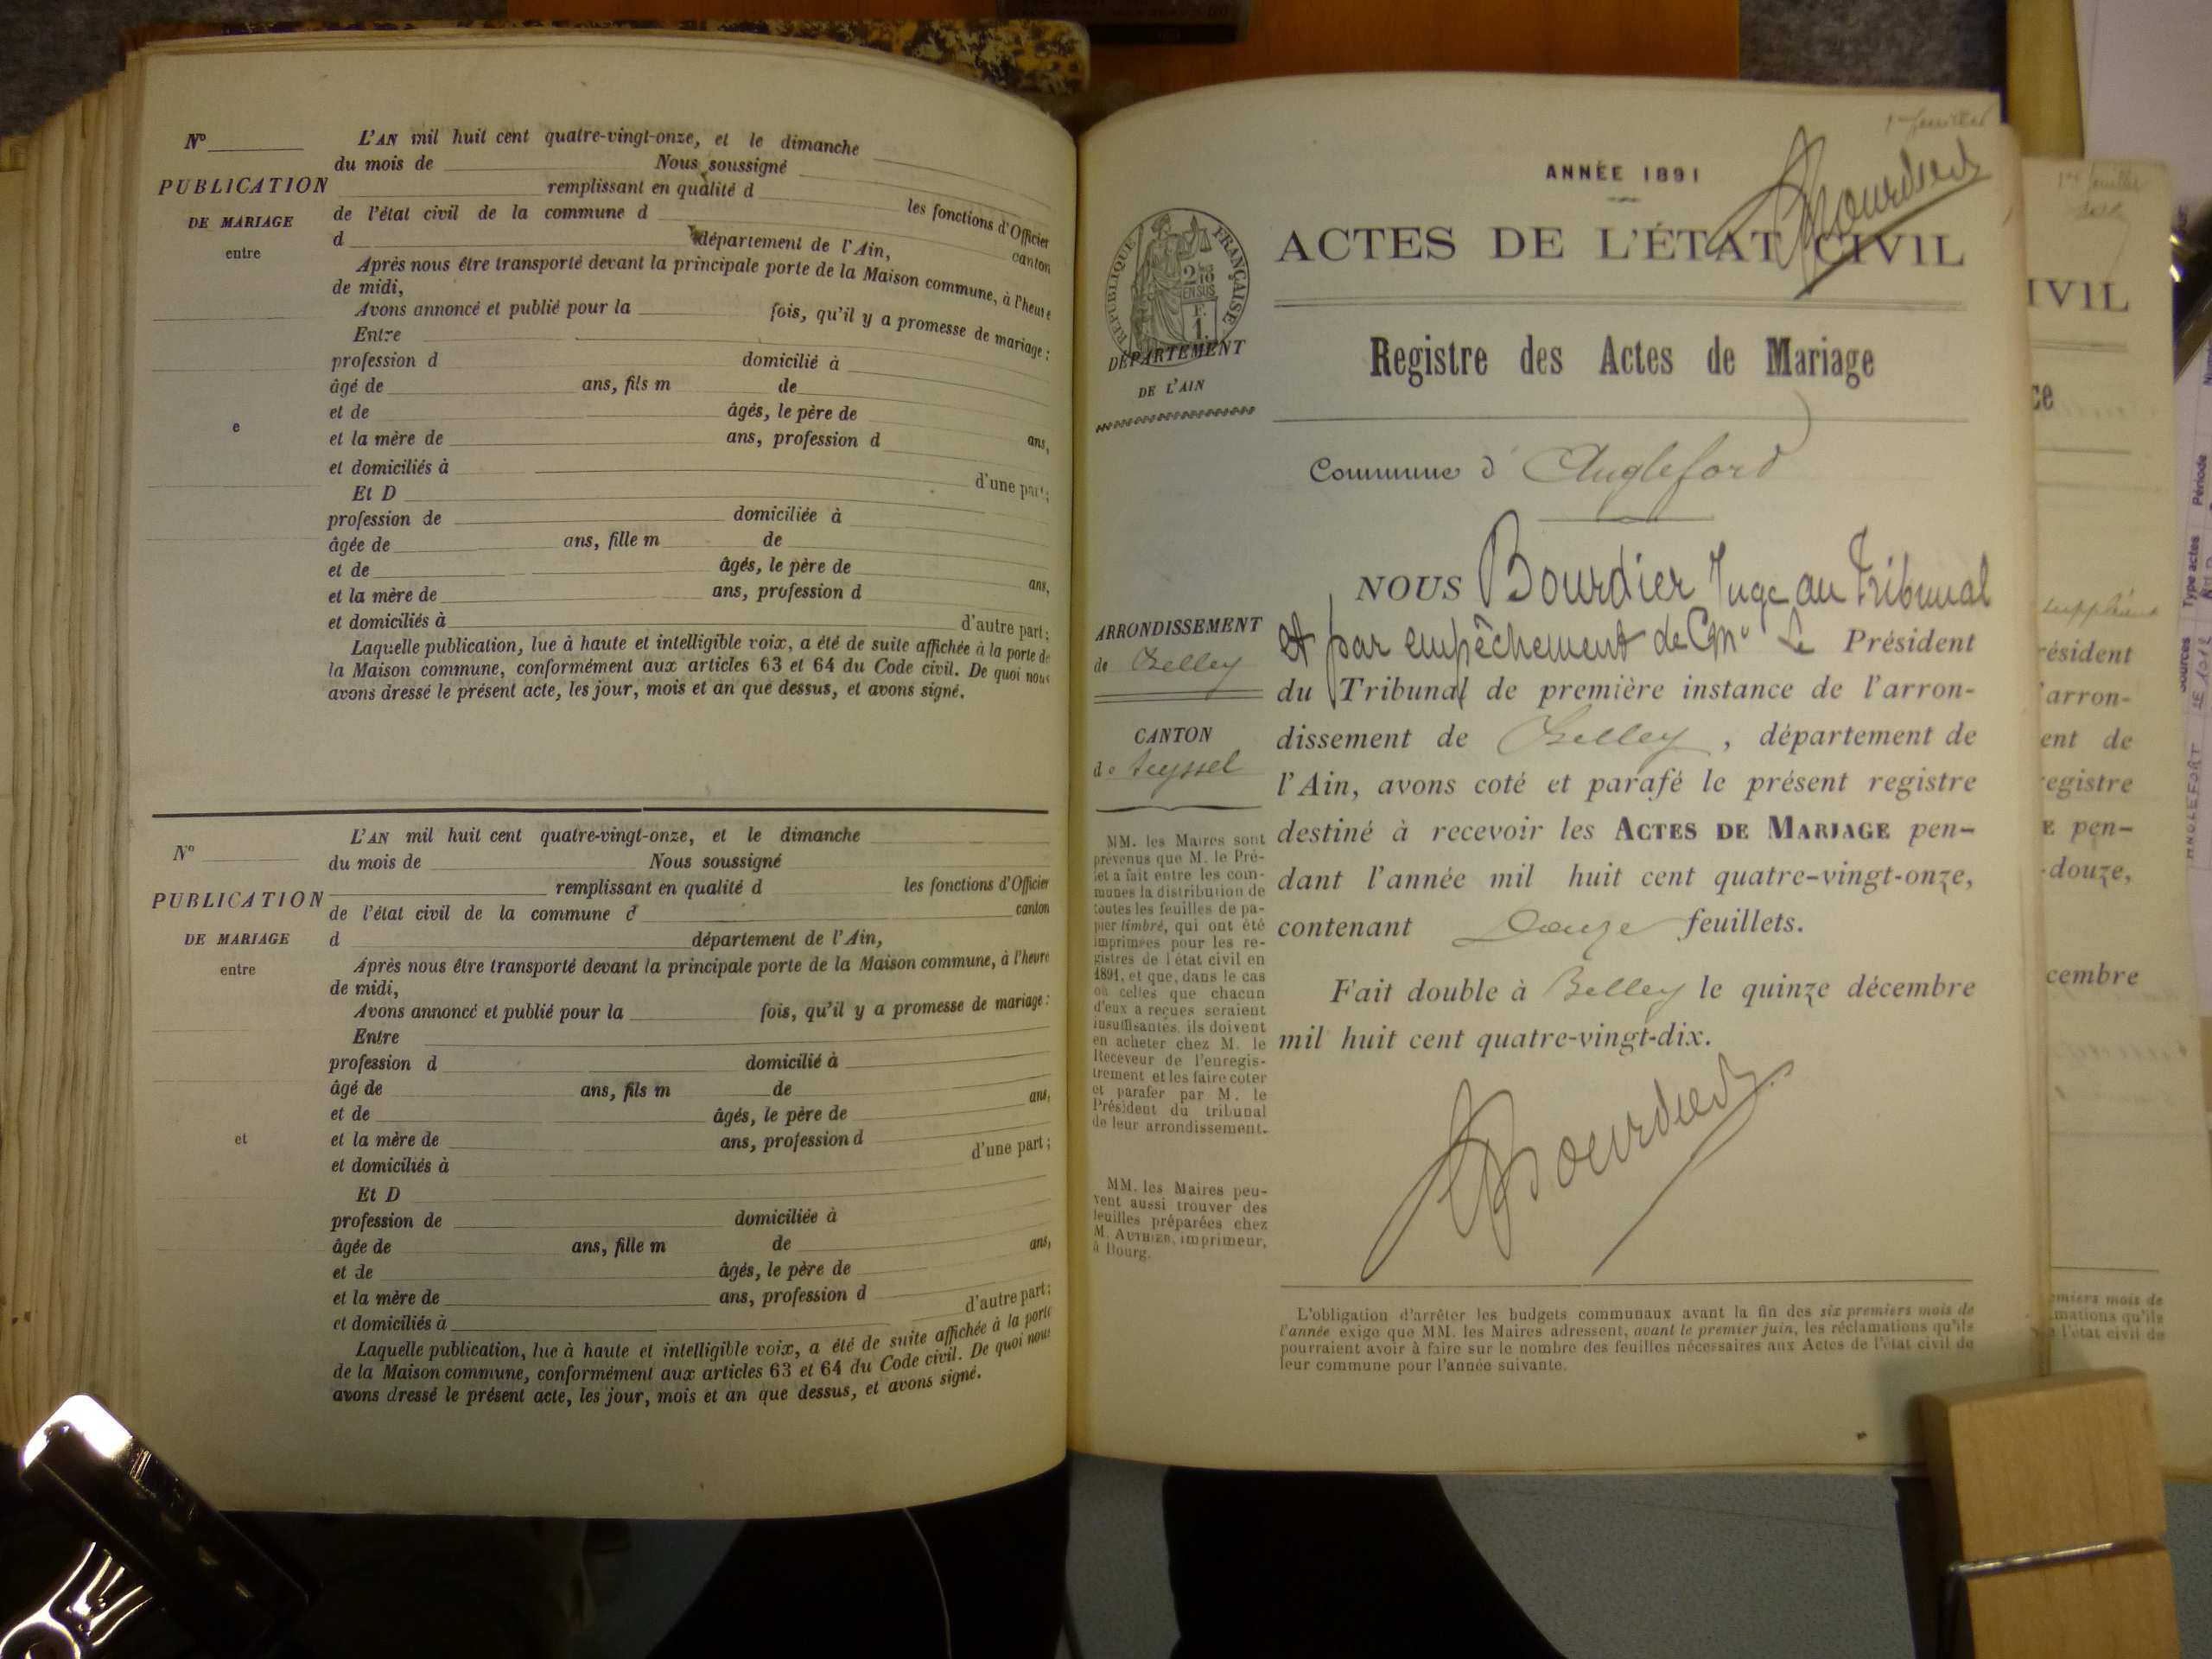 N°
PUBLICATION
DE MARIAGE
entre
e
L'AN mil huit cent quatre-vingt-onze, et le dimanche
du mois de Nous soussigné
remplissant en qualité d les fonctions d'Officier
de l'état civil de la commune d canton
d département de l'Ain,
Après nous être transporté devant la principale porte de la Maison commune, à l'heure
de midi,
Avons annoncé et publié pour la fois, qu'il y a promesse de mariage :
Entre
profession d domicilié à
âgé de ans, fils m de
et de âgés, le père de ans,
et la mère de ans, profession d
et domiciliés à d'une part;
Et D
profession de domiciliée à
âgée de ans, fille m de
et de âgés, le père de ans,
et la mère de ans, profession d
et domiciliés à d'autre part;
Laquelle publication, lue à haute et intelligible voix, a été de suite affichée à la porte de
la Maison commune, conformément aux articles 63 et 64 du Code civil. De quoi nous
avons dressé le présent acte, les jour, mois et an que dessus, et avons signé.
N°
PUBLICATION
DE MARIAGE
entre
et
L'AN mil huit cent quatre-vingt-onze, et le dimanche
du mois de Nous soussigné
remplissant en qualité d les fonctions d'Officier
de l'état civil de la commune d canton
d département de l'Ain,
Après nous être transporté devant la principale porte de la Maison commune, à l'heure
de midi,
Avons annoncé et publié pour la fois, qu'il y a promesse de mariage :
Entre
profession d domicilié à
âgé de ans, fils m de
et de âgés, le père de ans,
et la mère de ans, profession d
et domiciliés à d'une part;
Et D
profession de domiciliée à
âgée de ans, fille m de
et de âgés, le père de ans,
et la mère de ans, profession d
et domiciliés à d'autre part;
Laquelle publication, lue à haute et intelligible voix, a été de suite affichée à la porte
de la Maison commune, conformément aux articles 63 et 64 du Code civil. De quoi nous
avons dressé le présent acte, les jour, mois et an que dessus, et avons signé.
1er feuillet
Bourdier
ANNÉE 1891
ACTES DE L'ÉTAT CIVIL
RÉPUBLIQUE FRANÇAISE
2/10 EN SUS
F. 1.
DÉPARTEMENT
DE L'AIN
Registre des Actes de Mariage
Commune d'Angleford
ARRONDISSEMENT
de Belley
CANTON
de Seyssel
NOUS Bourdier Juge au Tribunal
et par empêchement de Mr Le Président
du Tribunal de première instance de l'arron-
dissement de Belley, département de
l'Ain, avons coté et parafé le présent registre
destiné à recevoir les ACTES DE MARIAGE pen-
dant l'année mil huit cent quatre-vingt-onze,
contenant Douze feuillets.
Fait double à Belley le quinze décembre
mil huit cent quatre-vingt-dix.
Bourdier
MM. les Maires sont
prévenus que M. le Pré-
fet a fait entre les com-
munes la distribution de
toutes les feuilles de pa-
pier timbré, qui ont été
imprimées pour les re-
gistres de l'état civil en
1891, et que, dans le cas
où celles que chacun
d'eux a reçues seraient
insuffisantes, ils doivent
en acheter chez M. le
Receveur de l'enregis-
trement et les faire coter
et parafer par M. le
Président du tribunal
de leur arrondissement.
MM. les Maires peu-
vent aussi trouver des
feuilles préparées chez
M. AUTHIER, imprimeur,
à Bourg.
L'obligation d'arrêter les budgets communaux avant la fin des six premiers mois de
l'année exige que MM. les Maires adressent, avant le premier juin, les réclamations qu'ils
pourraient avoir à faire sur le nombre des feuilles nécessaires aux Actes de l'état civil de
leur commune pour l'année suivante.
1er feuillet
IVIL
ce
suppléant
résident
'arron-
ent de
registre
E pen-
douze,
cembre
emiers mois de
mations qu'ils
l'état civil de
Période
Type actes
Sources
ANGLEFORT